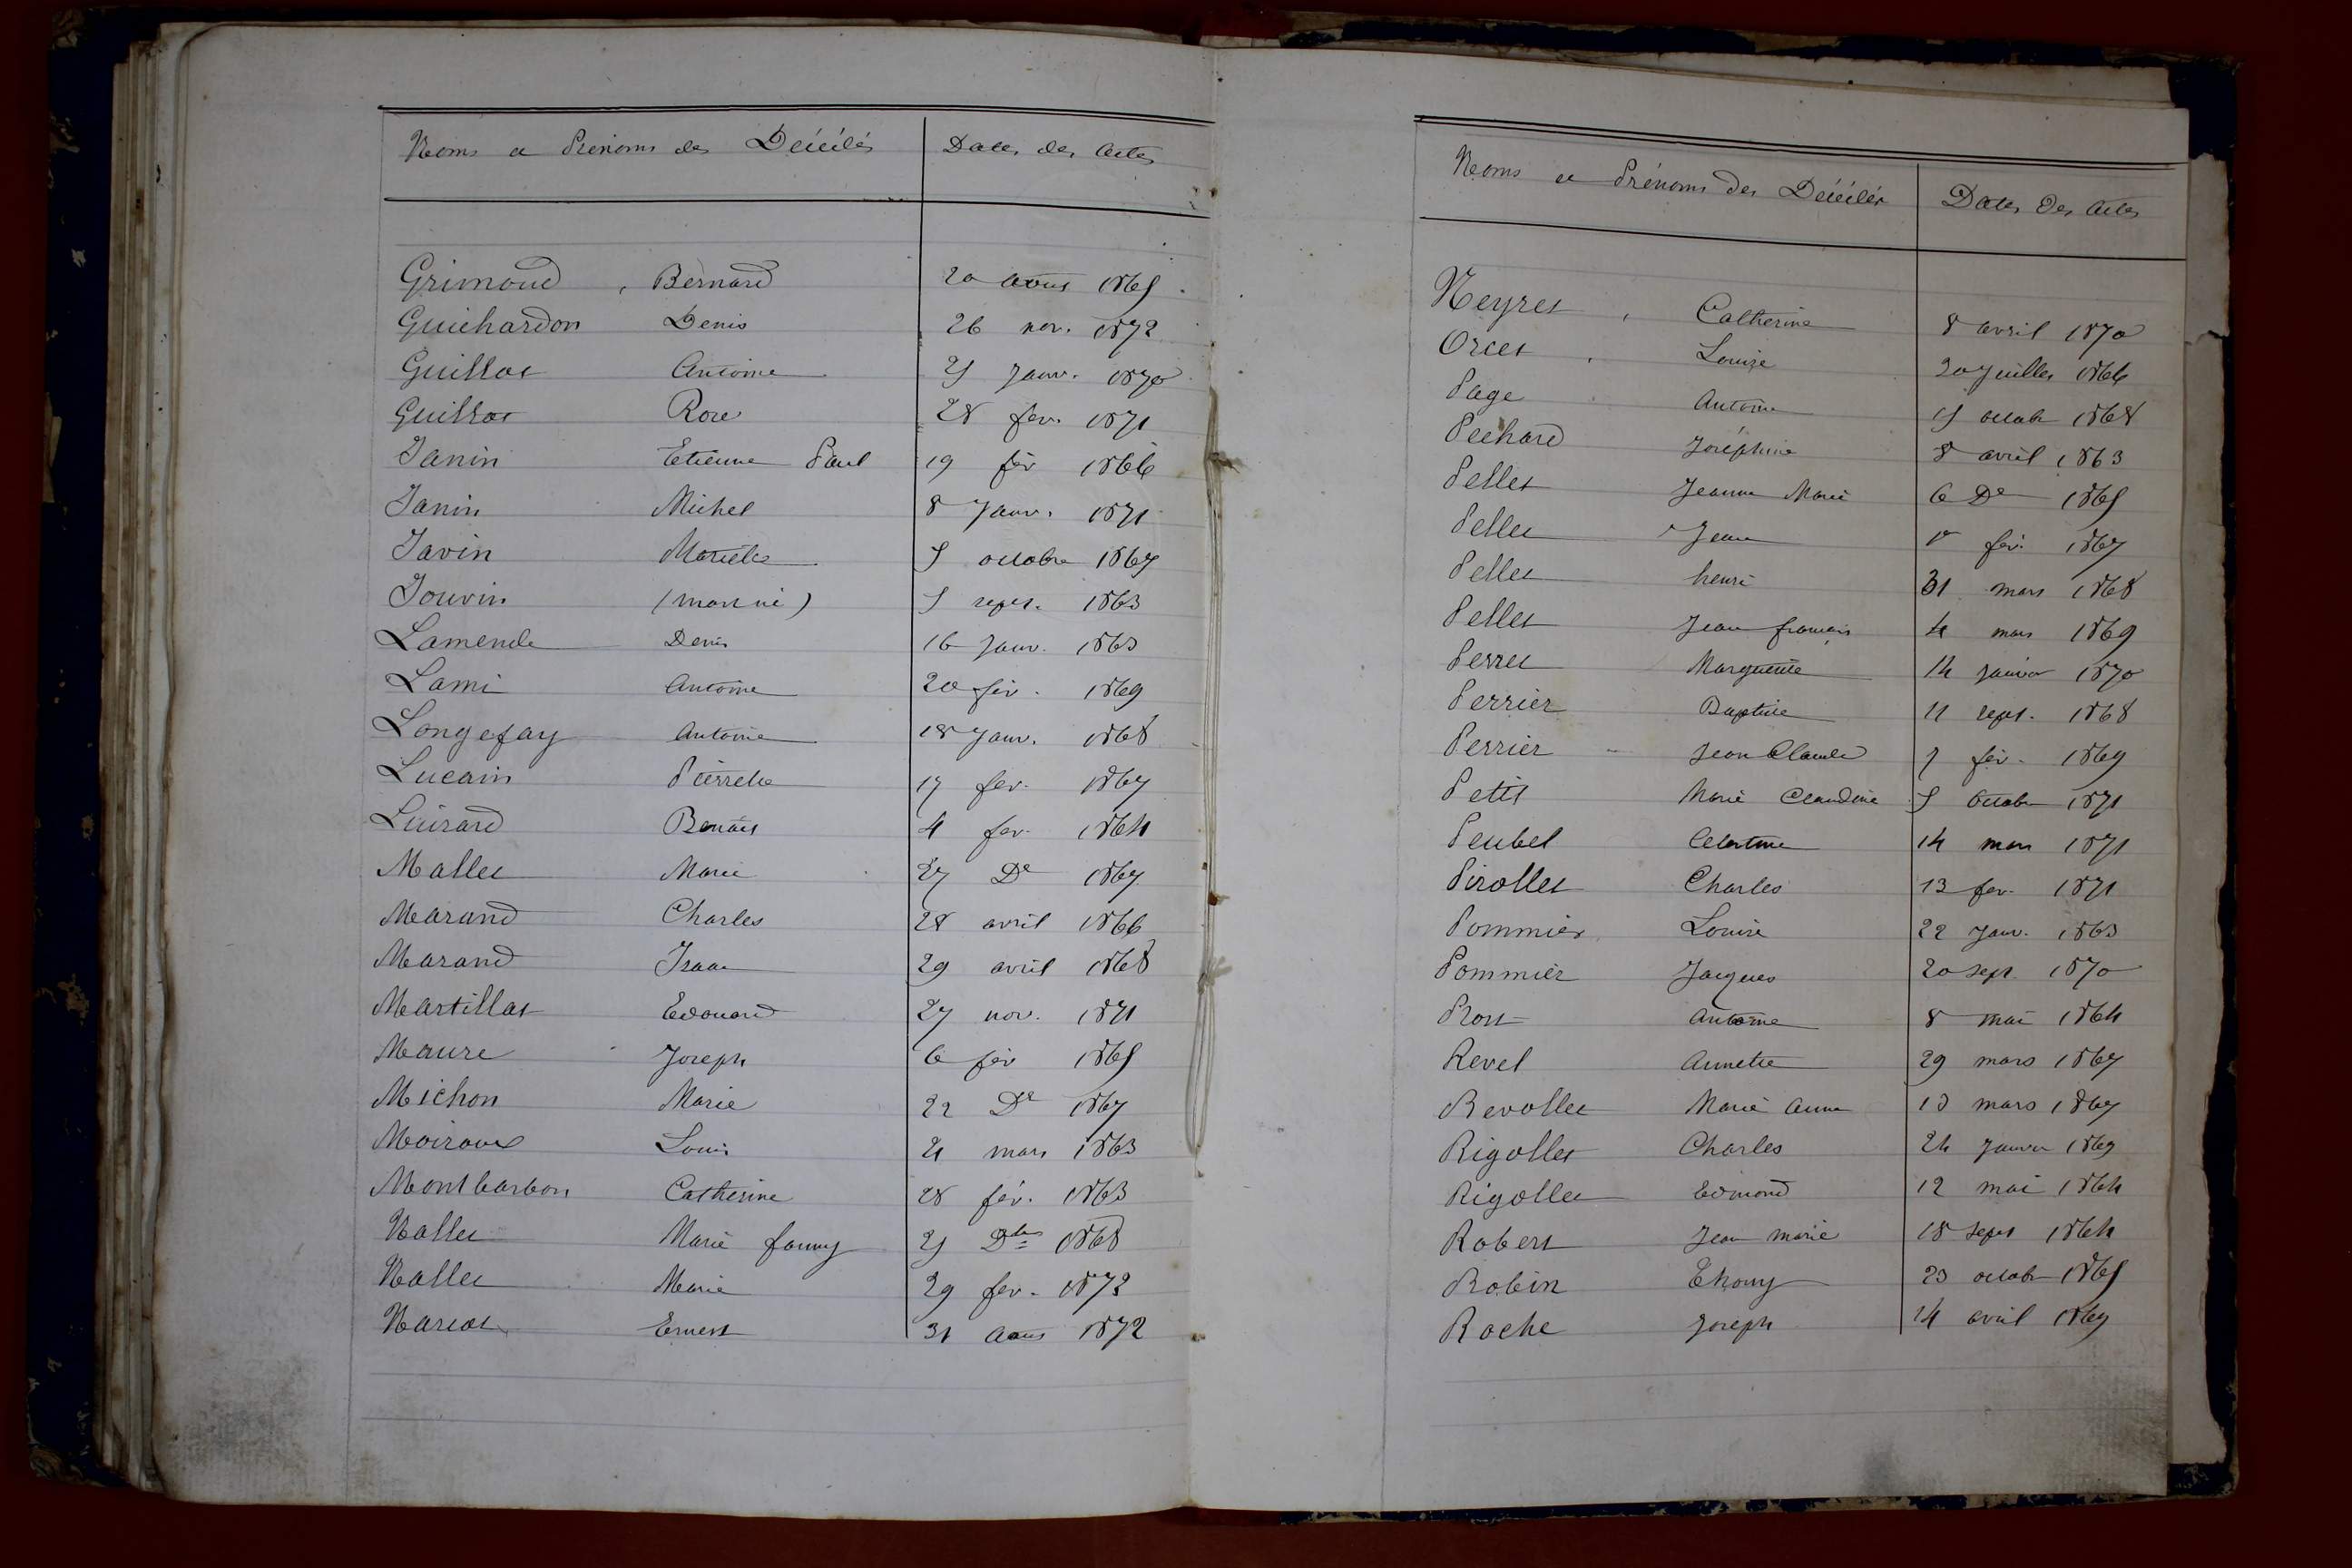 Noms et Prénoms des Décédés Dates des Actes
Grimoud, Bernard 20 aout 1865
Guichardon Denis 26 nov. 1872
Guillot Antoine 25 Janv. 1870
Guillot Rose 28 fev. 1871
Janin Etienne Paul 19 fév 1866
Janin Michel 8 Janv. 1871
Javin Mariette 5 octobre 1867
Jouvin (mort né) 5 sept. 1863
Lamende Denis 16 Janv. 1863
Lami Antoine 20 fév. 1869
Longefay Antoine 18 Janv. 1868
Lucain Pierrette 17 fev. 1867
Luirard Benoit 4 fev. 1864
Mallet Marie 27 De 1867
Marand Charles 28 avril 1866
Marand Isaac 29 avril 1868
Martillat Edouard 27 nov. 1871
Maure Joseph 6 fév 1865
Michon Marie 22 De 1867
Moiroux Louis 21 mars 1863
Montbarbon Catherine 28 fév. 1863
Nallet Marie fanny 25 Dbre 1868
Nallet Marie 29 fev. 1872
Nariot Ernest 31 Aout 1872
Noms et Prénoms des Décédés Dates des Actes
Neyret, Catherine 8 avril 1870
Orcet, Louise 20 Juillet 1866
Page Antoine 15 octob 1868
Pechard Joséphine 8 avril 1863
Pellet Jeanne Marie 6 De 1865
Pellet Jean 1er fév. 1867
Pellet henri 31 mars 1868
Pellet Jean françois 4 mars 1869
Perret Marguerite 14 janvier 1870
Perrier Baptiste 11 sept. 1868
Perrier Jean Claude 7 fév. 1869
Petit Marie Claudine 5 Octobre 1871
Peubel Celestine 14 mars 1871
Pirollet Charles 13 fev. 1871
Pommier, Louise 22 Janv. 1863
Pommier Jacques 20 sept. 1870
Prost Antoine 8 mai 1864
Revel Annette 29 mars 1867
Revollet Marie Anne 13 mars 1867
Rigollet Charles 24 Janvier 1869
Rigollet Edmond 12 mai 1864
Robert Jean marie 18 sept 1864
Robin 23 octob 1865
Roche Joseph 14 avril 1869